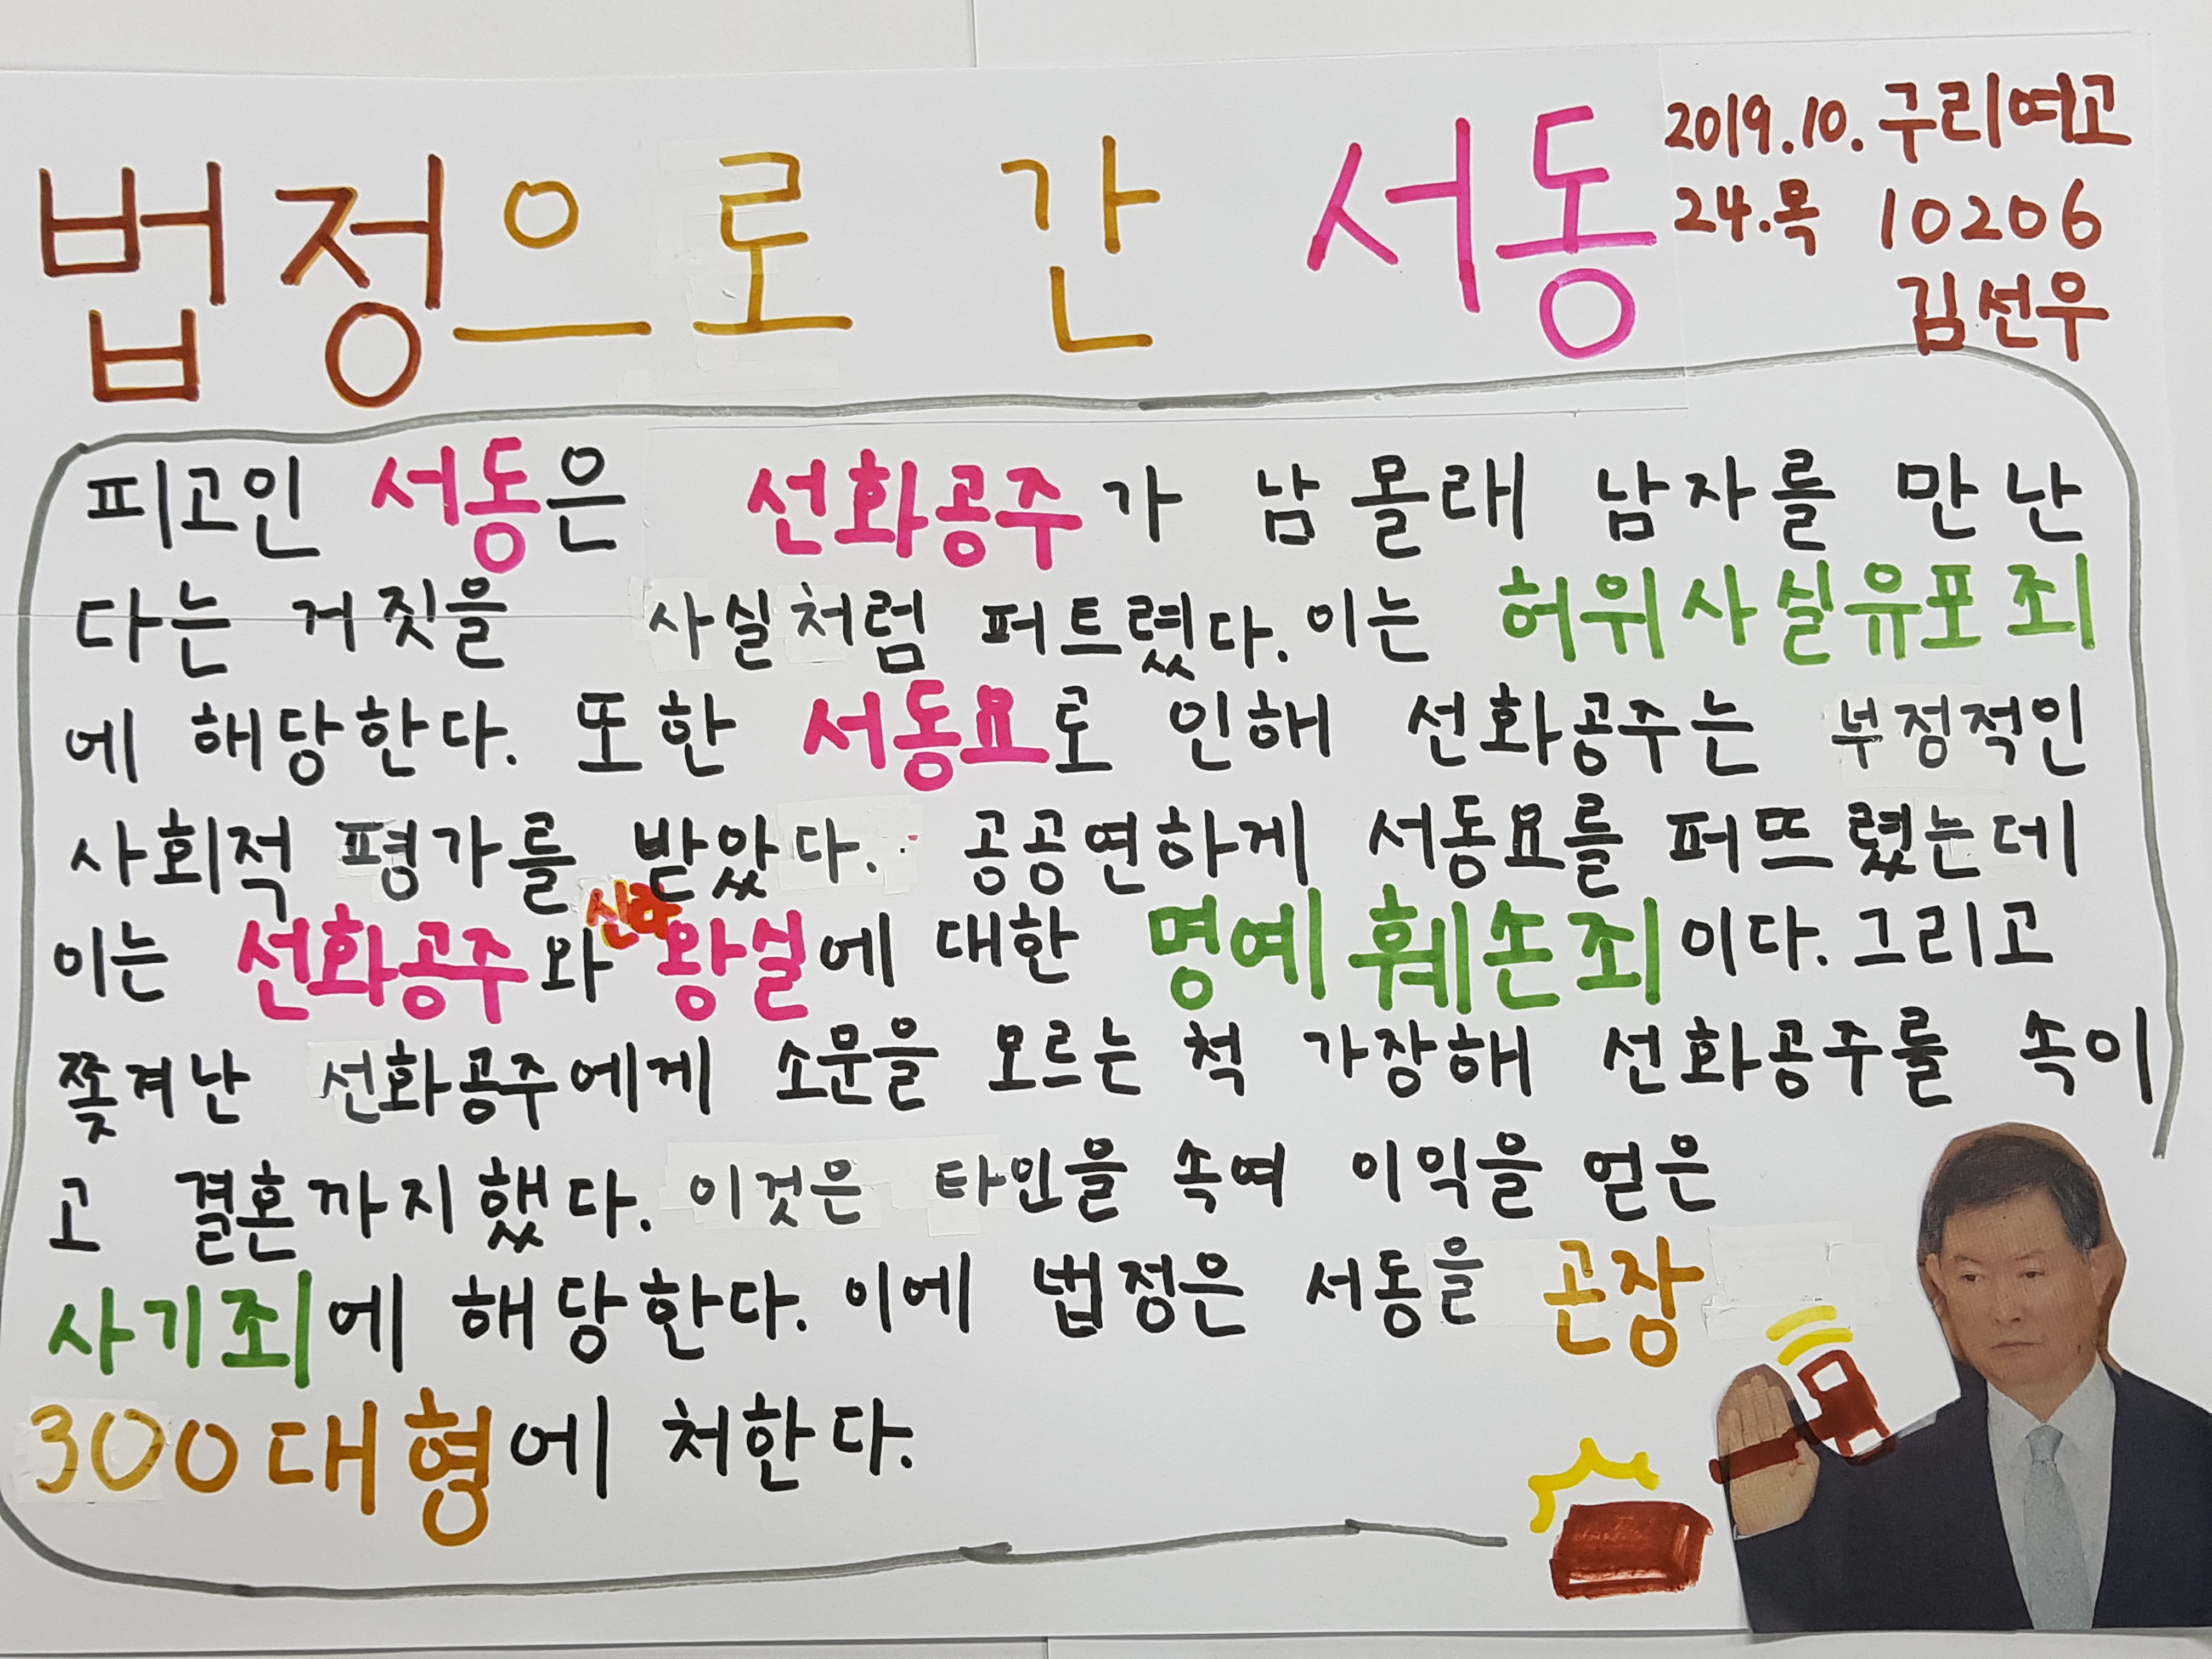 법정으로 간 서동
2019.10. 구리여고
24.목 10206
김선우
피고인 서동은 선화공주가 남 몰래 남자를 만난
다는 거짓을 사실처럼 퍼트렸다. 이는 허위사실유포죄
에 해당한다. 또한 서동요로 인해 선화공주는 부정적인
사회적 평가를 받았다. 공공연하게 서동요를 퍼뜨렸는데
이는 선화공주와 신라 왕실에 대한 명예훼손죄이다. 그리고
쫓겨난 선화공주에게 소문을 모르는 척 가장해 선화공주를 속이
고 결혼까지했다. 이것은 타인을 속여 이익을 얻은
사기죄에 해당한다. 이에 법정은 서동을 곤장
300대형에 처한다.